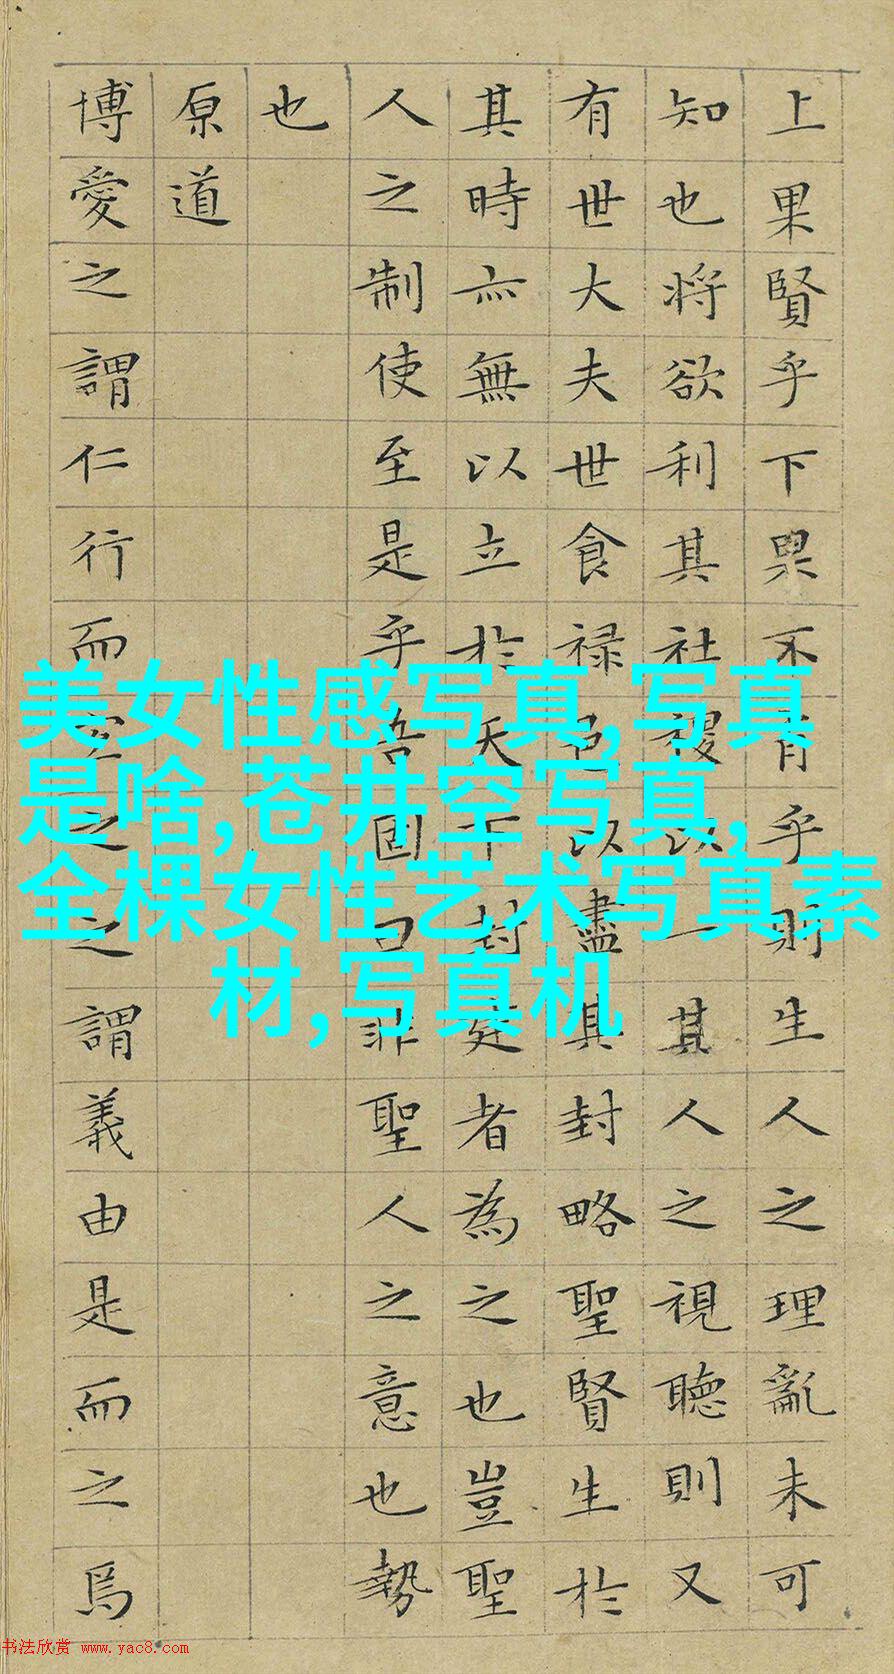 上果賢乎下果不肖乎則生人之理亂未可
知也將欲利其社稷以一其人之視聽則又
有世大夫世食禄邑以盡其封略聖賢生於
其時亦無以立於天下封建者為之也豈聖
人之制使至是乎吾固曰非聖人之意也勢
也
原道
博愛之謂仁行而宜之之謂義由是而之焉
美女性感写真,写真
是啥,苍井空写真,
全棵女性艺术写真素
材,写真机
书法欣赏 www.yac8.com